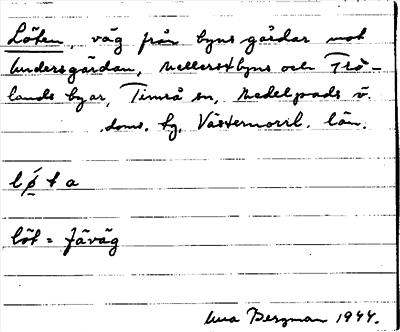 Löten, väg från byns gårdar mot
Undersgårdan, Mellerstbyns och Frö-
lands byar, Timrå sn, Medelpads v.
doms. hg, Västernorrl. län.
lø´ta
löt = fäväg
Una Bergman 1944.